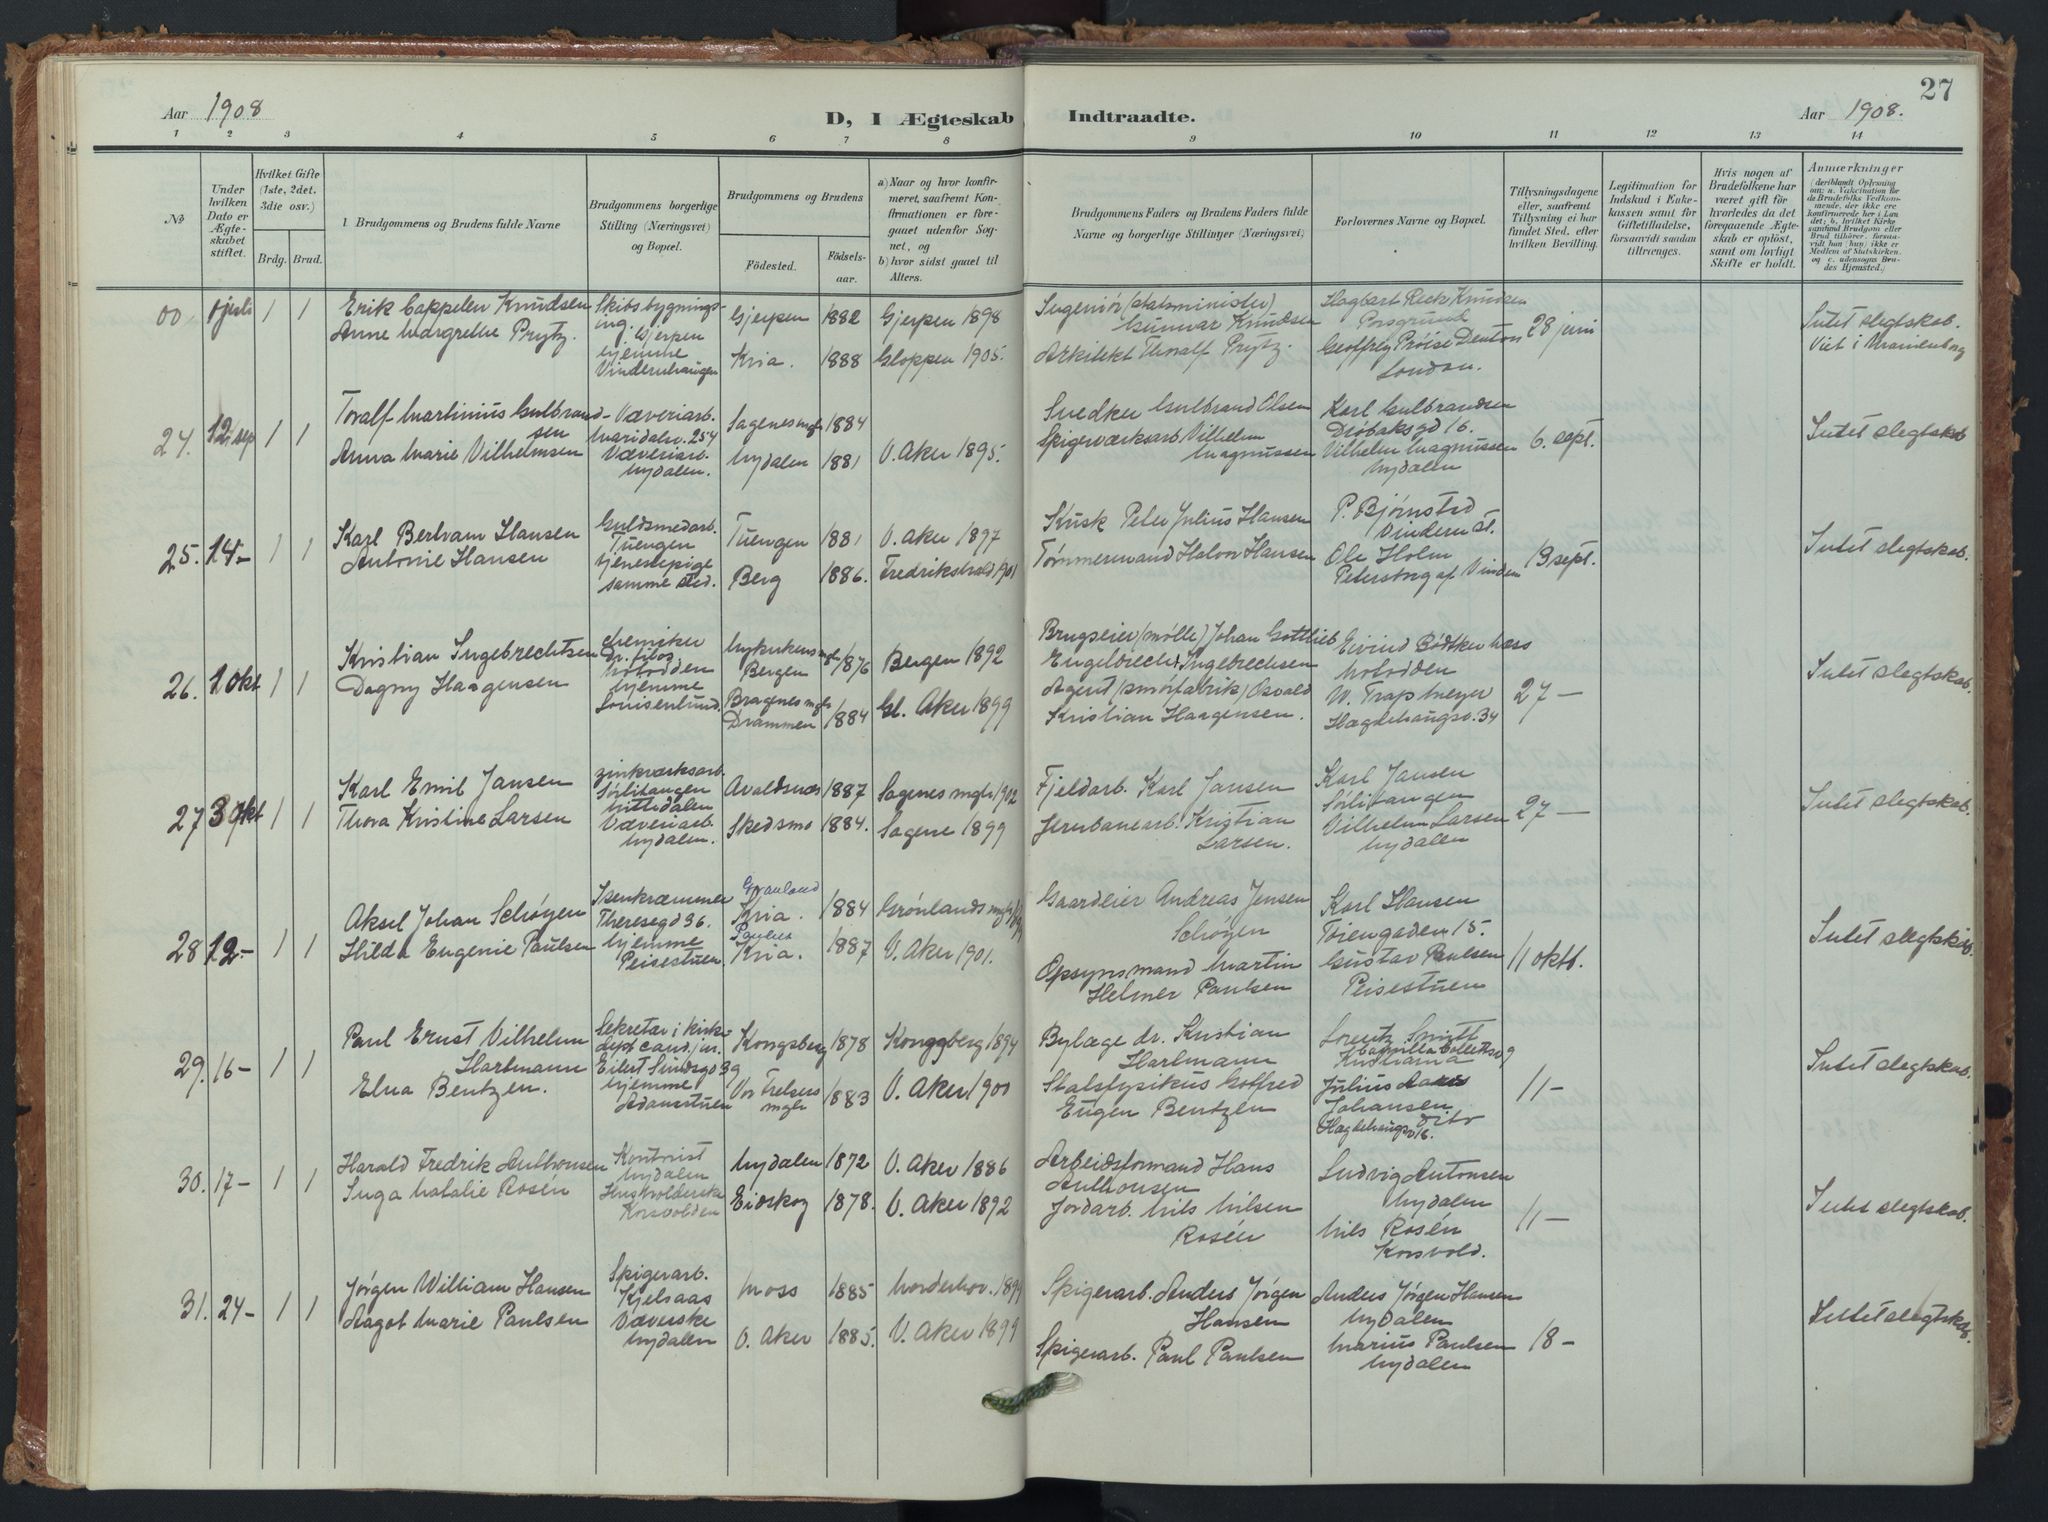 27
Aar 1908
D, I Ægteskab Indtraadte.
Aar 1908.
1 2 3 4 5 6 7 8 9 10 11 12 13 14
No
Under hvilken Dato er Ægteskabet stiftet.
Hvilket Gifte (1ste, 2det. 3die osv.)
Brdg. Brud.
1. Brudgommens og Brudens fulde Navne
Brudgommens borgerlige Stilling (Næringsvei) og Bopæl.
Brudgommens og Brudens
Fødested. Fødselsaar.
a) Naar og hvor konfirmeret, saafremt Konfirmationen er foregaaet udenfor Sognet, og
b) hvor sidst gaael til Alters.
Brudgommens Faders og Brudens Faders fulde Navne og borgerlige Stillinger (Næringsvei)
Forlovernes Navne og Bopæl.
Tillysningsdagene eller, saafremt Tillysning ei har fundet Sted. efter hvilken Bevilling.
Legitimation for Indskud i Enkekassen samt for Giftetilladelse, forsaavidt saadan tiltrænges.
Hvis nogen af Brudefolkene har været gift før hvorledes da det foregaaende Ægteskab er opløst, samt om lovligt Skifte er holdt.
Anmærkninger
00 juli 1 1
Erik Cappelen Knudsen
Anne Margrethe Prytz.
Skibsbygnings-
ing. Gjerpen
hjemme
Vindernhaugen
Gjerpen 1882 Gjerpen 1898
Kria. 1888 Gloppen 1905.
Ingeniör (statsminister)
Gunnar Knudsen
Arkitekt Thoralf Prytz.
Porsgrund
Geoffrey Denton
London.
28 juni
Intet slegtskab.
Viet i Uranienborg
24. 12 sep 1 1
Toralf Martinius Gulbrand-
sen
Anna Marie Vilhelmsen
Væveriarb.
Maridalsv. 254
Væveriarb.
Nydalen.
Sagenes mgh 1884
Nydalen 1881 V. Aker 1895.
Snedker Gulbrand Olsen
Spigerværksarb. Vilhelm
Magnussen
Karl Gulbrandsen
Drøbaksgd 16.
Vilhelm Magnussen
Nydalen
6. sept.
Intet slegtskab
25. 14- 1 1
Karl Bertram Hansen
Antonie Hansen
Guldsmedarb.
Tuengen
tjenestepige
samme sted.
Tuengen 1881 V. Aker 1897
Berg 1886. Fredrikshald 1901
Kusk Peter Julius Hansen
Tømmermand Halvor Hansen
P. Bjørnstad
Vinderen st.
Ole Holm
13 sept.
Intet slegtskab.
26. 1 okt 1 1
Kristian Ingebrechtsen
Dagny Haagensen
chemiker
Dr. filos
Notodden
hjemme
Louisenlund.
Nykirkens mgh
Bergen 1876 Bergen 1892
Bragenes mgh
Drammen 1884 Gl. Aker 1899
Brugseier (mølle) Johan Gottlieb
Engelbrecht Ingebrechtsen
Agent (smørfabrik) Osvald
Kristian Haagensen.
Eivind Bødtker Næss
Notodden
W. Trap Meyer
Hægdehaugsv. 34
27 -
Intet slegtskab.
27 3 okt 1 1
Karl Emil Jansen
Thora Kristine Larsen
zinkværksarb.
Sørlitangen
Nittedalen
Væveriarb.
Nydalen.
Avaldsnæs 1887 Sagenes mgh 1902
Skedsmo 1884. Sagene 1899
Fjeldarb. Karl Jansen
Jernbanearb. Kristian
Larsen.
Karl Jansen
Sørlitangen
Vilhelm Larsen
Nydalen
27 -
Intet slegtskab.
28 12- 1 1
Aksel Johan Schøyen
Hilda Eugenie Paulsen
Isenkræmmer
Theresegd 36.
hjemme
Peisestuen.
Grønland
Kria. 1884 Grønlands mgh
Paulus
Kria. 1887 V. Aker 1901.
Gaardeier Andreas Jensen
Schøyen
Opsynsmand Martin
Helmer Paulsen
Karl Hansen
Tøiengaden 15.
Gustav Paulsen
Peisestuen
11 oktb.
Intet slegtskab.
29. 16- 1 1
Paul Ernst Vilhelm
Hartmann
Elna Bentzen.
Sekretær i kirke-
dept cand. jur.
Eilert Sundsgd 39
hjemme
Adamstuen
Kongsberg 1878 Kongsberg 1894
Vor Frelsers
mgh 1883 V. Aker 1900
Bylæge dr. Kristian
Hartmann
Statsfysikus Gotfred
Eugen Bentzen
Lorentz Smitt
Camilla Collettsv 9
Kristiania
Julius
Johansen
Hægdehaugsv 16. dito
11 -
Intet slegtskab.
30. 17- 1 1
Harald Fredrik Anthonsen
Inga Natalie Rosén
Kontorist
Nydalen
Husholderske
Korsvolden
Nydalen 1872 V. Aker 1886
Eidskog 1878. V. Aker 1892
Arbeidsformand Hans
Anthonsen
Jordarb. Nils Nilsen
Rosén
Ludvig Antonsen
Nydalen
Nils Rosén
Korsvold.
11 -
Intet slegtskab.
31. 24- 1 1
Jørgen William Hansen
Aagot Marie Paulsen
Spigerarb.
Kjelsaas
Væverske
Nydalen
Moss 1885 Norderhov. 1899
V. Aker 1885. V. Aker 1899
Spigerarb. Anders Jørgen
Hansen
Spigerarb. Paul Paulsen
Anders Jørgen Hansen
Nydalen
Marius Paulsen
Nydalen
18 -
Intet slegtskab.